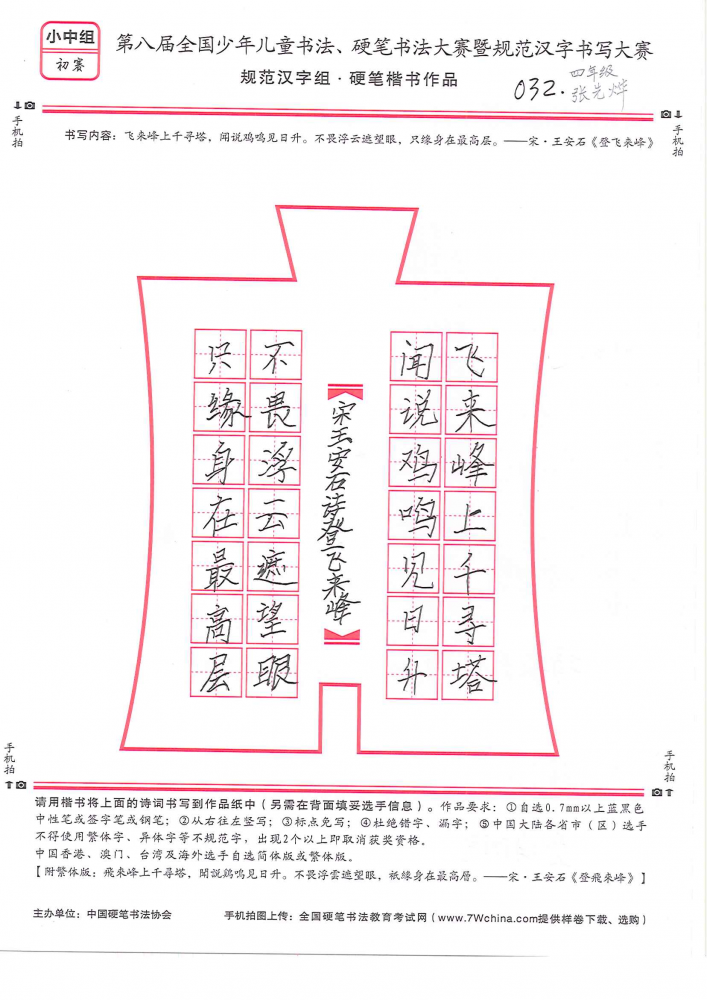 小中组
初赛
第八届全国少年儿童书法、硬笔书法大赛暨规范汉字书写大赛
规范汉字组·硬笔楷书作品
032.
四年级
张先烨
手机拍
手机拍
书写内容：飞来峰上千寻塔，闻说鸡鸣见日升。不畏浮云遮望眼，只缘身在最高层。——宋·王安石《登飞来峰》
飞来峰上千寻塔
闻说鸡鸣见日升
宋王安石诗登飞来峰
不畏浮云遮望眼
只缘身在最高层
手机拍
手机拍
请用楷书将上面的诗词书写到作品纸中（另需在背面填妥选手信息）。作品要求：①自选0.7mm以上蓝黑色
中性笔或签字笔或钢笔；②从右往左竖写；③标点免写；④杜绝错字、漏字；⑤中国大陆各省市（区）选手
不得使用繁体字、异体字等不规范字，出现2个以上即取消获奖资格。
中国香港、澳门、台湾及海外选手自选简体版或繁体版。
【附繁体版：飛來峰上千尋塔，聞說鷄鳴見日升。不畏浮雲遮望眼，祇緣身在最高層。——宋·王安石《登飛來峰》】
主办单位：中国硬笔书法协会
手机拍图上传：全国硬笔书法教育考试网（www.7Wchina.com提供样卷下载、选购）